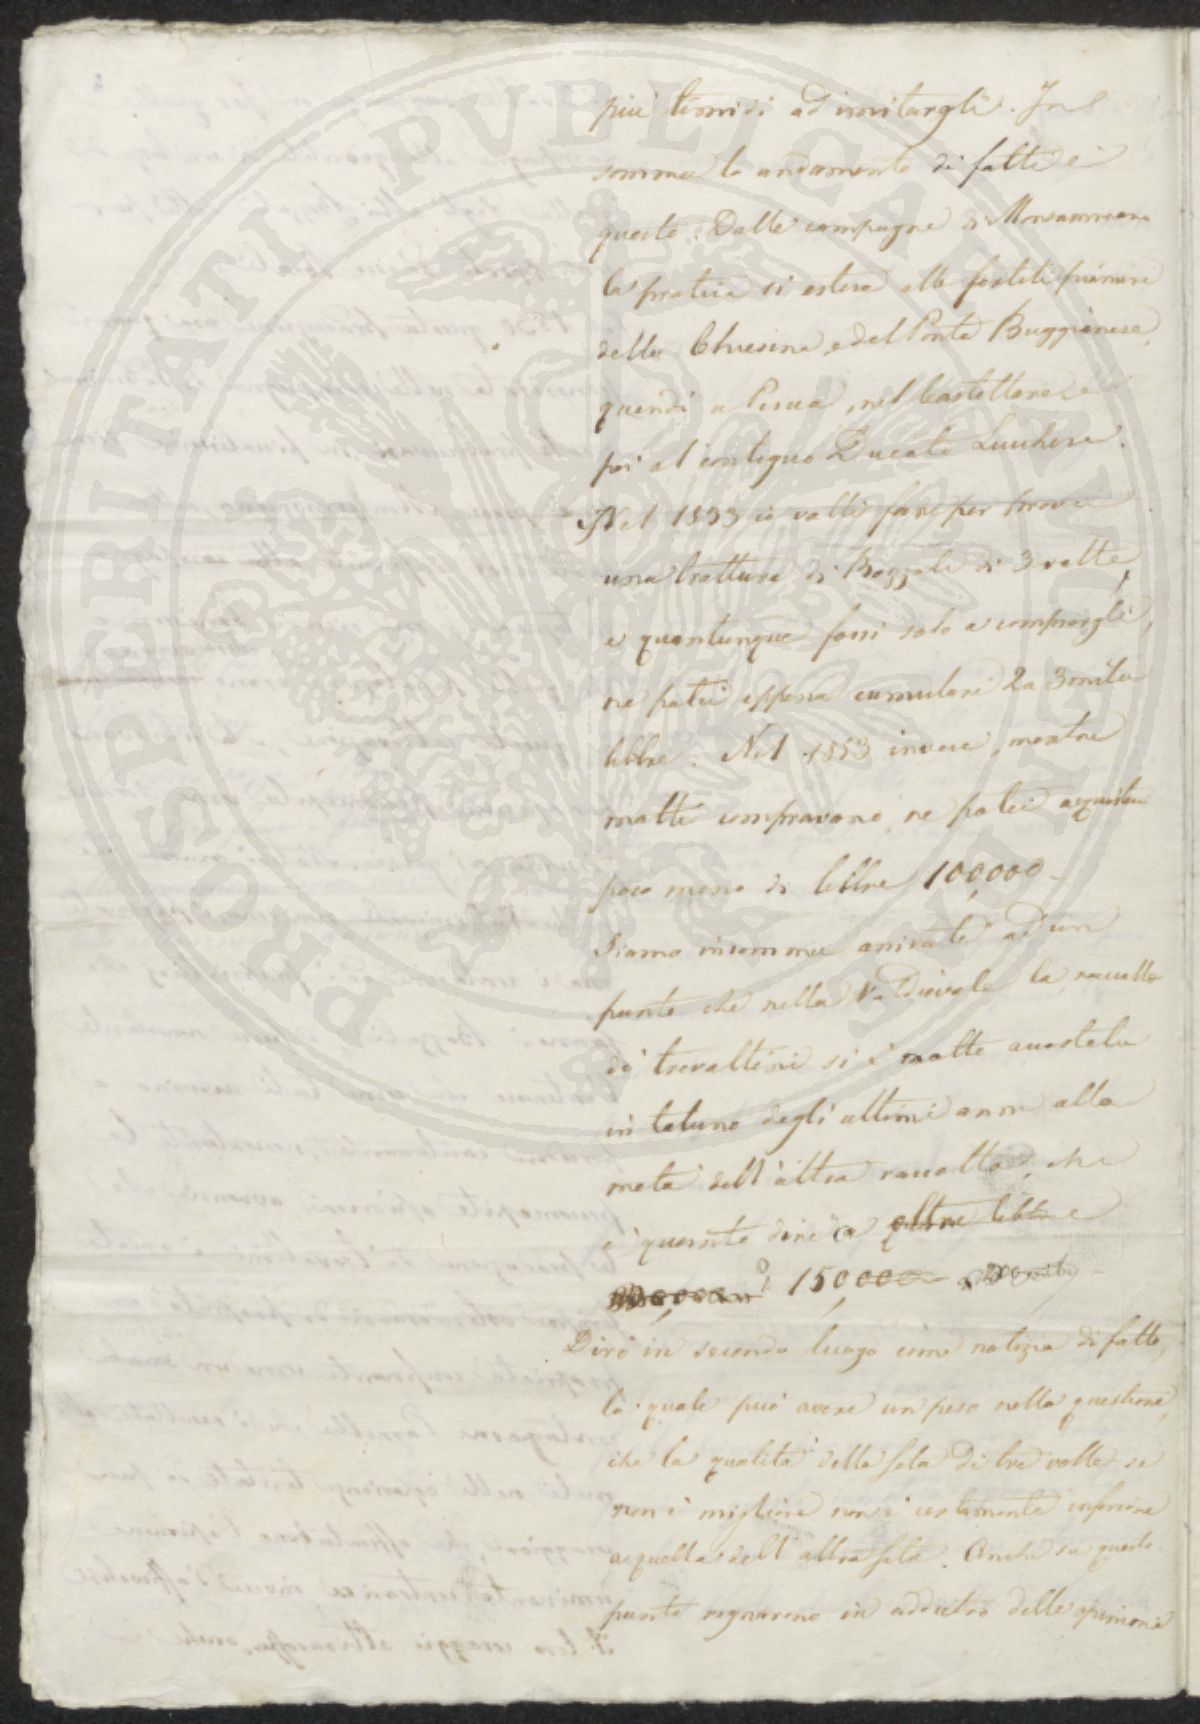 più timidi ad imitargli. In
somma lo andamento di fatto è
questo. Dalle campagne di Monsummano
la pratica si estese alle fertili pianure
della Chiesina e del Ponte Buggianese,
quindi a Pescia, nel Castellare e
poi al contiguo Ducato Lucchese.
Nel 1833 io volli fare per prova
una trattura di Bozzoli di 3 volte,
e quantunque fossi solo a comprargli,
ne potei appena cumulare 2 a 3 mila
libbre. Nel 1853 invece, mentre
molti compravano, ne potei acquistar
poco meno di libbre 100,000.
Siamo insomma arrivati ad un
punto che nella Valdievole la raccolta
di trevoltini si è molto accostata
in taluno degli ultimi anni alla
metà dell'altra raccolta, che
è quanto dire a oltre libbre
150,000
Dirò in secondo luogo come notizia di fatto,
la quale può avere un peso nella questione,
che la qualità della seta di tre volte se
non è migliore non è certamente inferiore
a quella dell'altra seta. Anche su questo
punto regnarono in addietro delle opinioni
PROSPERITATI PUBLICAE AUGENDAE